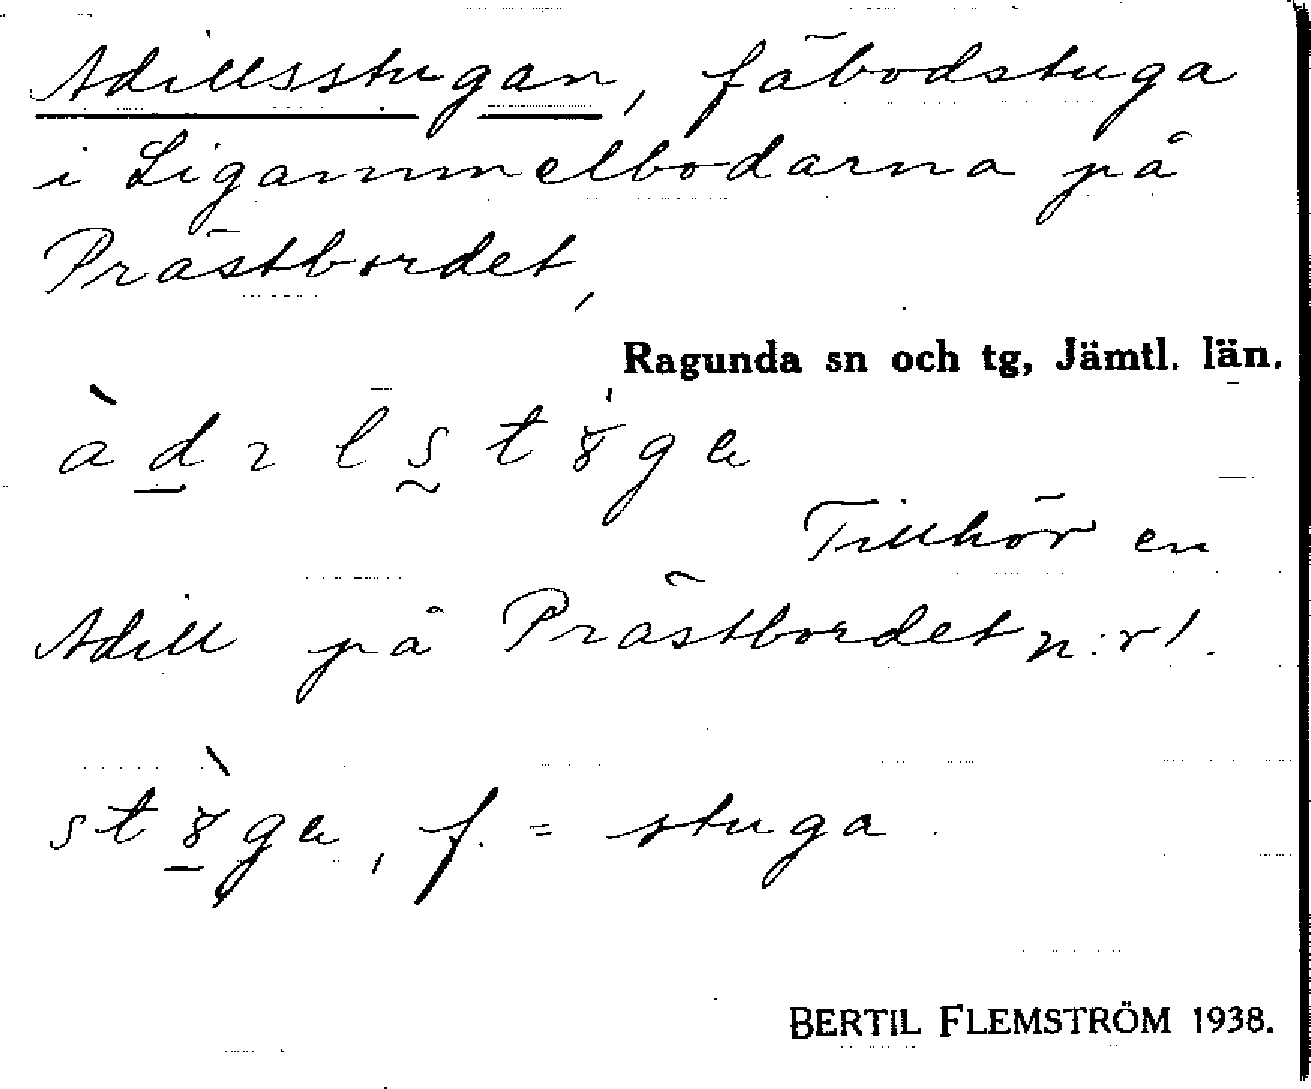 Adillsstugan, fäbodstuga
i Ligammelbodarna på
Prästbordet,
Ragunda sn och tg, Jämtl. län.
Tillhör en
Adill på Prästbordet n:r 1.
f. = stuga.
BERTIL FLEMSTRÖM 1938.